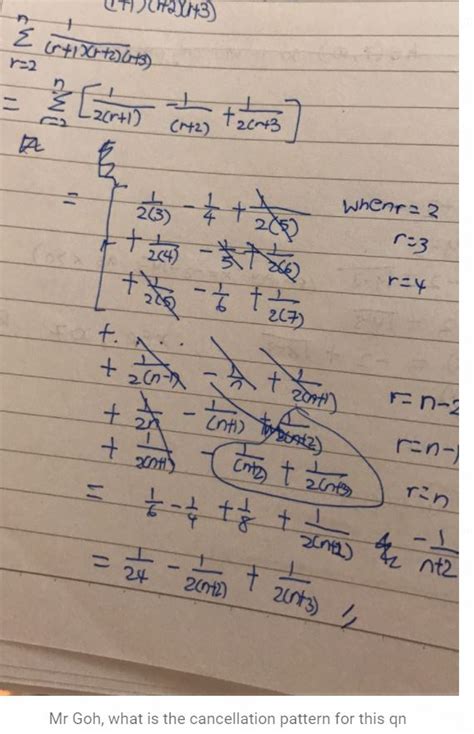 (r+1)(r+2)(r+3)
n
Σ 1/((r+1)(r+2)(r+3))
r=2
= n Σ r=2 [ 1/(2(r+1)) - 1/(r+2) + 1/(2(r+3) ]
= [ 1/(2(3)) - 1/4 + 1/(2(5)) when r = 2
+ 1/(2(4)) - 1/5 + 1/(2(6)) r=3
+ 1/(2(5)) - 1/6 + 1/(2(7)) r=4
+ . . . .
+ 1/(2(n-1)) - 1/n + 1/(2(n+1)) r=n-2
+ 1/(2n) - 1/(n+1) + 1/(2(n+2)) r=n-1
+ 1/(2(n+1)) - 1/(n+2) + 1/(2(n+3)) r=n
= 1/6 - 1/4 + 1/8 + 1/(2(n+2)) - 1/(n+2)
= 1/24 - 1/(2(n+2)) + 1/(2(n+3))
Mr Goh, what is the cancellation pattern for this qn